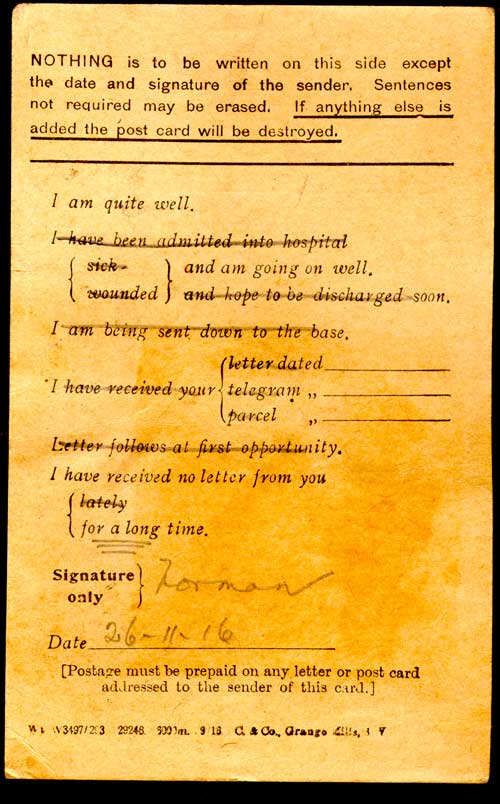 NOTHING is to be written on this side except
the date and signature of the sender. Sentences
not required may be erased. If anything else is
added the post card will be destroyed.
I am quite well.
I have been admitted into hospital
{ sick } and am going on well.
{ wounded } and hope to be discharged soon.
I am being sent down to the base.
{ letter dated
I have received your { telegram „
{ parcel „
Letter follows at first opportunity.
I have received no letter from you
{ lately
{ for a long time.
Signature
only } Norman
Date 26-11-16
[Postage must be prepaid on any letter or post card
addressed to the sender of this card.]
29248. 9/16 C. & Co., Grange